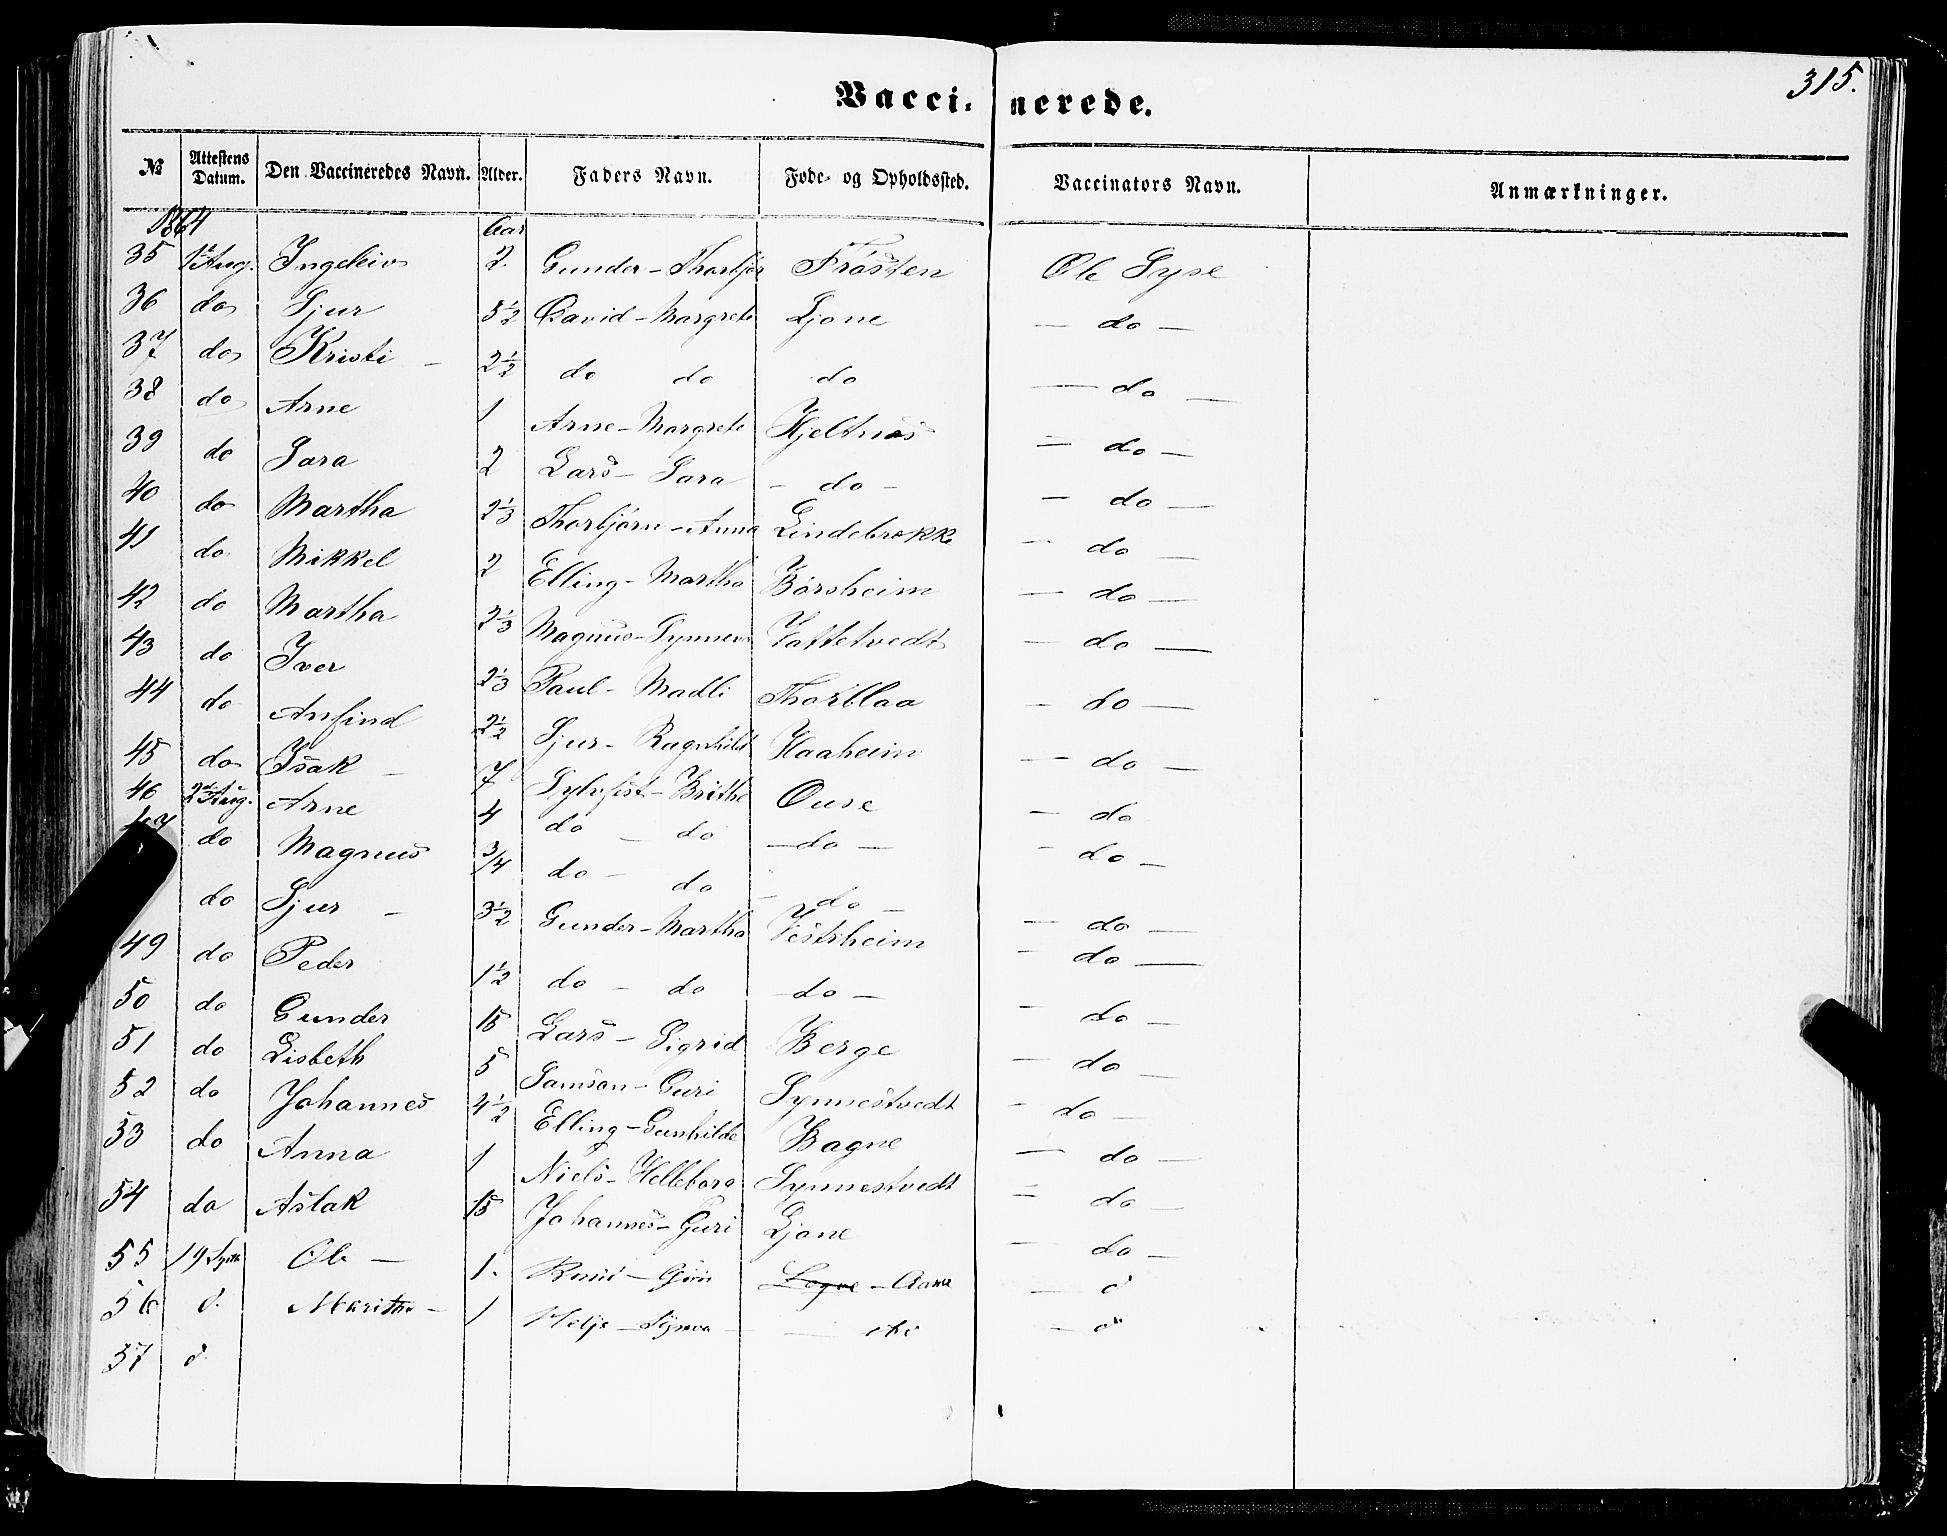 315.
Vaccinerede.
№ Attestens Datum. Den Vaccineredes Navn. Alder. Faders Navn. Føde- og Opholdssted. Vaccinators Navn. Anmærkninger.
1864 Aar
35 1ste Aug. Ingeleiv 2 Gunder - Thorbjør Frøsten Ole Syse
36 do Sjur 5½ David - Margrete Ljone - do -
37 do Kristi - 2½ do do do - do -
38 do Arne 1 Arne - Margrete Hjeltnæs - do -
39 do Sara 2 Lars - Sara - do - - do -
40 do Martha 2⅓ Thorbjørn - Anna Lindebrække - do -
41 do Mikkel 2 Elling - Martha Børsheim - do -
42 do Martha 2⅓ Magnus - Synneva Vattetvedt - do -
43 do Iver 2⅓ Paul - Madli Thorblaa - do -
44 do Anfind 2½ Sjur - Ragnhild Haaheim - do -
45 do Isak - 7 Sylvfest - Brithe Ouse - do
46 2den Aug. Arne 4 do - do - do - - do -
47 do Magnus 3/4 do - do - do - - do -
do Sjur - 3½ Gunder - Martha Vestrheim - do -
49 do Peder 1½ do - do - do - - do -
50 do Gunder 15 Lars - Sigrid Berge - do -
51 do Lisbeth 5 Samson - Guri Synnestvedt - do -
52 do Johannes 4½ Elling - Gunhilde Bagne - do -
53 do Anna 1 Niels - Helleborg Synnestvedt - do -
54 do Aslak 15 Johannes - Guri Ljone - do -
55 19 Septb Ole - 1. - d
56 d. Maritha - 1 Helje - - d
57 d.